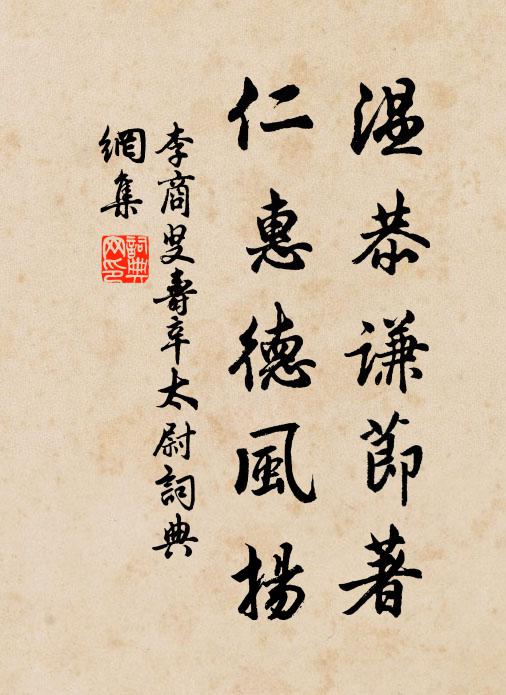 温恭謙節著
仁惠德風揚
李商叟壽辛太尉詞典
網集
詞典
网印